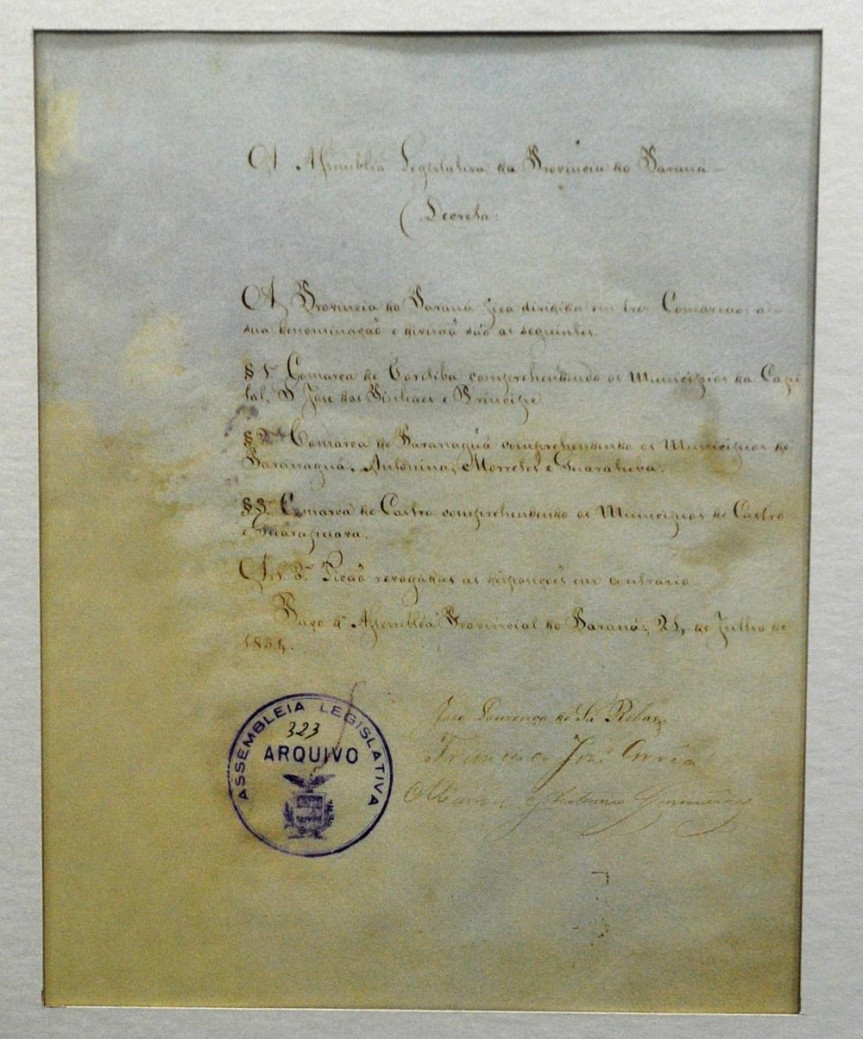 A Assemblea Legislativa da Provincia do Paraná
Decreta:
A Provincia do Paraná fica dividida em tres Comarcas: a
sua denominação e divisão são as seguintes.
§ 1º Comarca de Coritiba comprehendendo os Municipios da Capi
tal, S. José dos Pinhaes e Principe
§ 2º Comarca de Paranaguá comprehendendo os Municipios de
Paranaguá, Antonina, Morretes e Guaratuba.
§ 3º Comarca de Castro comprehendendo os Municipios de Castro
e Guarapuava.
Art. 3º Ficão revogadas as disposições em contrario.
Paço d' Assemblea Provincial do Paraná, 24 de Julho de
1854.
José Lourenço de Sá Ribas
Francisco José Corrêa
Antonio
ASSEMBLEIA LEGISLATIVA
323
ARQUIVO